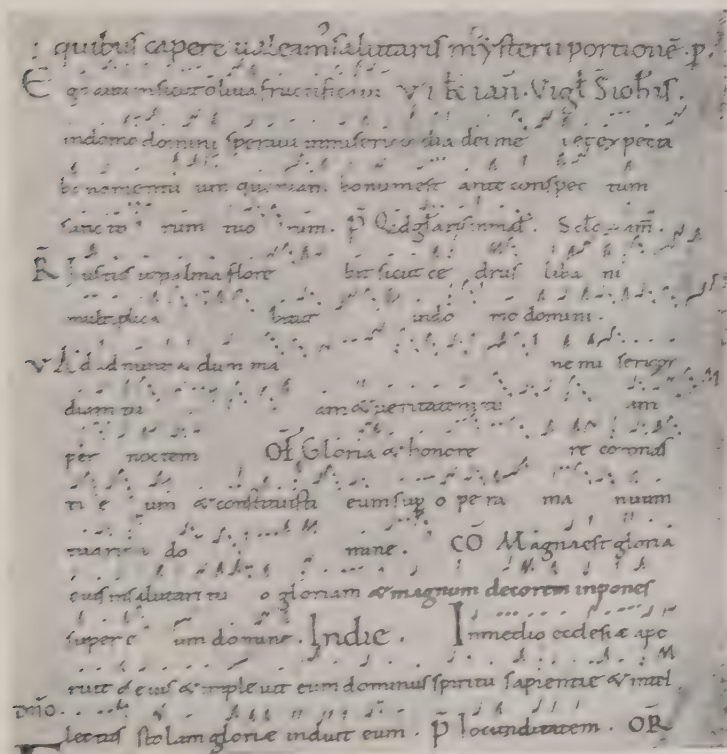 quibus capere ualeam salutaris mysterii portionē. p.
Ego autem sicut oliua fructificaui VIII kł ian. Vigł S iohis.
in domo domini speraui in misericordia dei mei et expecta
bo nomen tuum quoniam bonum est ante conspec tum
sanc to rum tuo rum. p̄ Qid glaris in mał.
R̄ Iustus ut palma flore bit sicut ce drus liba ni
multiplica bitur in do mo domini.
V Ad ad nunci a dum ma ne mi sericor
diam tu am & ueritatem tu am
per noctem OF Gloria & honore re coronas
ti e um & constituisti eum sup o pe ra ma nuum
tuarum do mine. CŌ Magna est gloria
eius in salutari tu o gloriam & magnum decorem inpones
super e um domine. In die. In medio ecclesiæ ape
ruit os eius & impleuit eum dominus spiritu sapientie & intel
lectus stolam gloriæ induit eum. p̄ Iocunditatem. OR̄